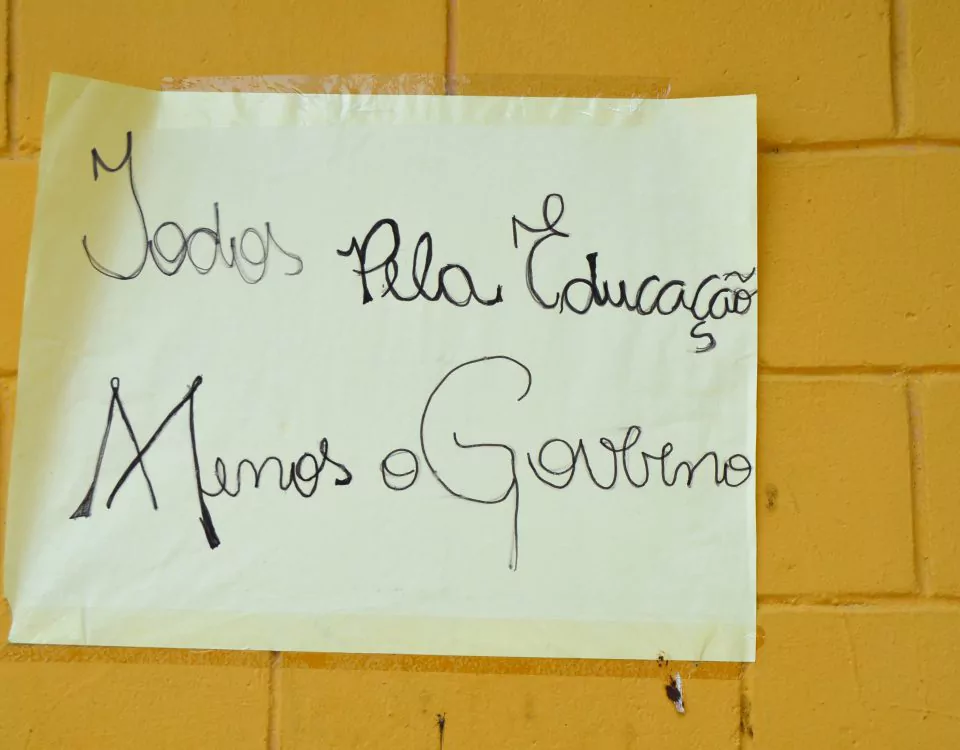 Todos Pela Educação
Menos o Governo